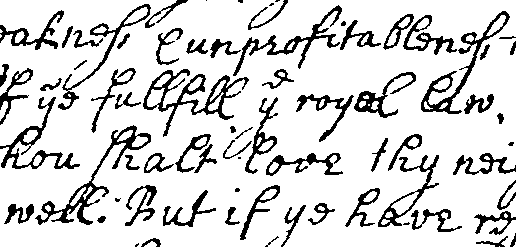 eakness, & unprofitableness,
if ye fullfill yᵉ royal law,
hou shalt love thy nei
well: But if ye have re